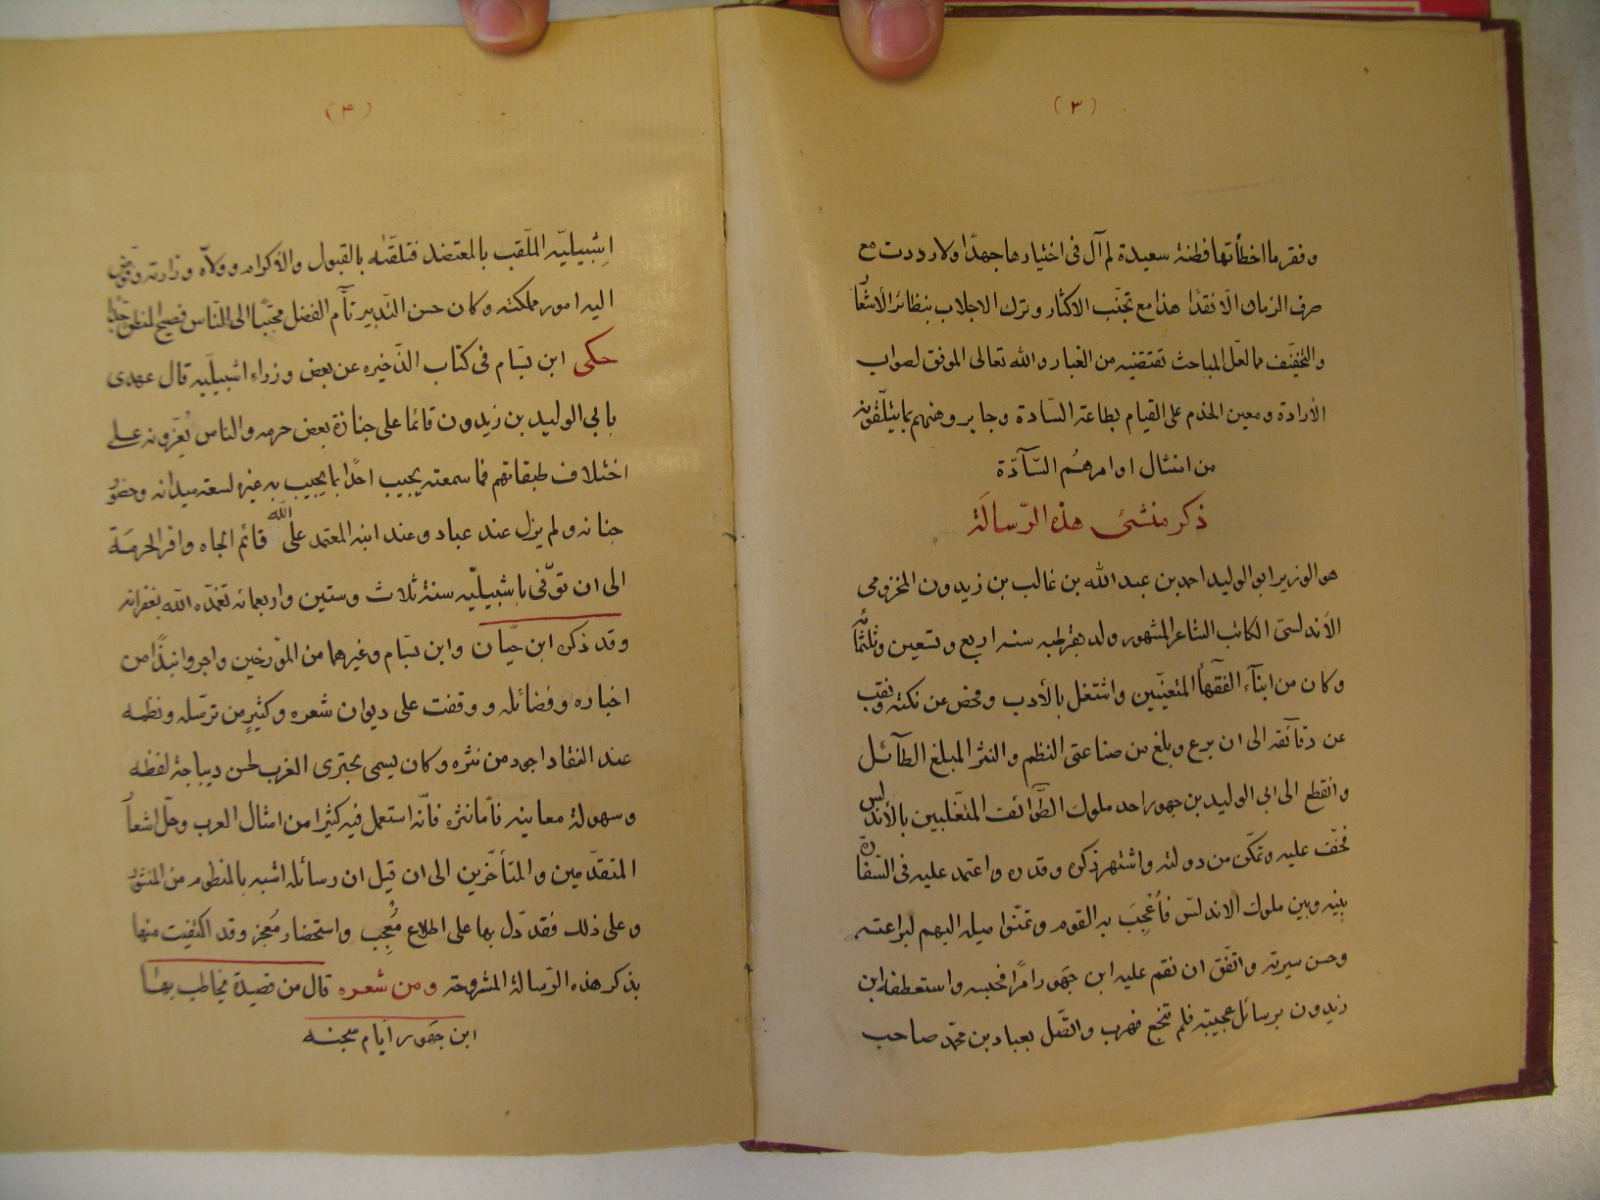 (٣)
وفقر ما اخطأتها فطنة سعيدة لم آل فى اختيارها جهدًا ولا رددت مع
صرف الزمان الّا نقدًا هذا مع تجنّب الاكثار وترك الاجلاب بنظائر الأشعا
والتخفيف مما لعل المباحث تقتضيه من الغبار والله تعالى الموفق لصواب
الأرادة ومعين الخدم على القيام بطاعة السّادة وجابر وهنهم بما يتلقّونه
من امتثال اوامرهُم السّآدّة
ذكر منشئ هذه الرّسالَة
هو الوزير ابو الوليد احمد بن عبد الله بن غالب بن زيدون المخزومى
الأندلسىّ الكاتب الشاعر المشهور ولد بقرطبه سنه اربع وتسعين وثلثمأ
وكان من ابنآء الفقهآء المتعيّنين واشتغل بالأدب وفحص عن نكته ونقّب
عن دقآئقه الى ان برع وبلغ من صناعتى النظم والنثر المبلغ الطآئل
وانقطع الى ابى الوليد بن جهور احد ملوك الطّوائف المتغلبين بالأندلس
فخفّ عليه وتمكّن من دولته واشتهر ذكره وقدره واعتمد عليه فى السّفارة
بينه وبين ملوك الاندلس فأُعْجِبَ به القوم وتمنّوا ميله اليهم لبراعته
وحسن سيرته واتّفق ان نقم عليه ابن جَهور امرًا فحبسه واستعطفه ابن
زيدون برسائل عجيبة فلم تنجع فهرب واتّصل بعباد بن محمّد صاحب
(۴)
اِشبيليّه الملّقب بالمعتضد فتلقّاه بالقبول والاكرام وولّاه وزارته وفوّض
اليه امور مملكته وكان حسن التّدبير تآم الفضل محبّبًا الى النّاس فصيح المنطق جدًا
حكى ابن بَسّام فى كتاب الذّخيره عن بعض وزراء اشبيليّه قال عهدى
بابى الوليد بن زيدون قائما على جنازة بعض حرمه والناس يُعزّونه على
اختلاف طبقاتهم فما سمعته يجيب احدًا بما يجيب به غيره لسعة ميدانه وحضور
جنانه ولم يزل عند عباد وعند ابنه المعتمد على الله قائم الجاه وافر الحرمَة
الى ان توّفّى باشبيليّه سنة ثلاث وستين واربعمائه تغمّده الله بغفرانه
وقد ذكره ابن حيّان وابن بَسّام وغيرهما من المؤرخين واجروا نبذًا من
اخباره وفضائله ووقفت على ديوان شعره وكثيرٍ من ترسّله ونظمه
عند النقّاد اجود من نثره وكان يسمى بحترى الغرب لحسن ديباجة لفظه
وسهولة معانيه فأما نثره فأنّه استعمل فيه كثيرًا من امثال العرب وحلّ اشعاً
المتقدّمين والمتأخّرين الى ان قيل ان رسائله اشبه بالمنظوم من المنثور
وعلى ذلك فقد دّل بها على اطلاع مُعجِب واستحضار مُعجز وقد اكتفيت منها
بذكر هذه الرّسالة المشروحة ومن شعره قال من قصيدة يخاطب بها
ابن جَهور ايّام سجنه